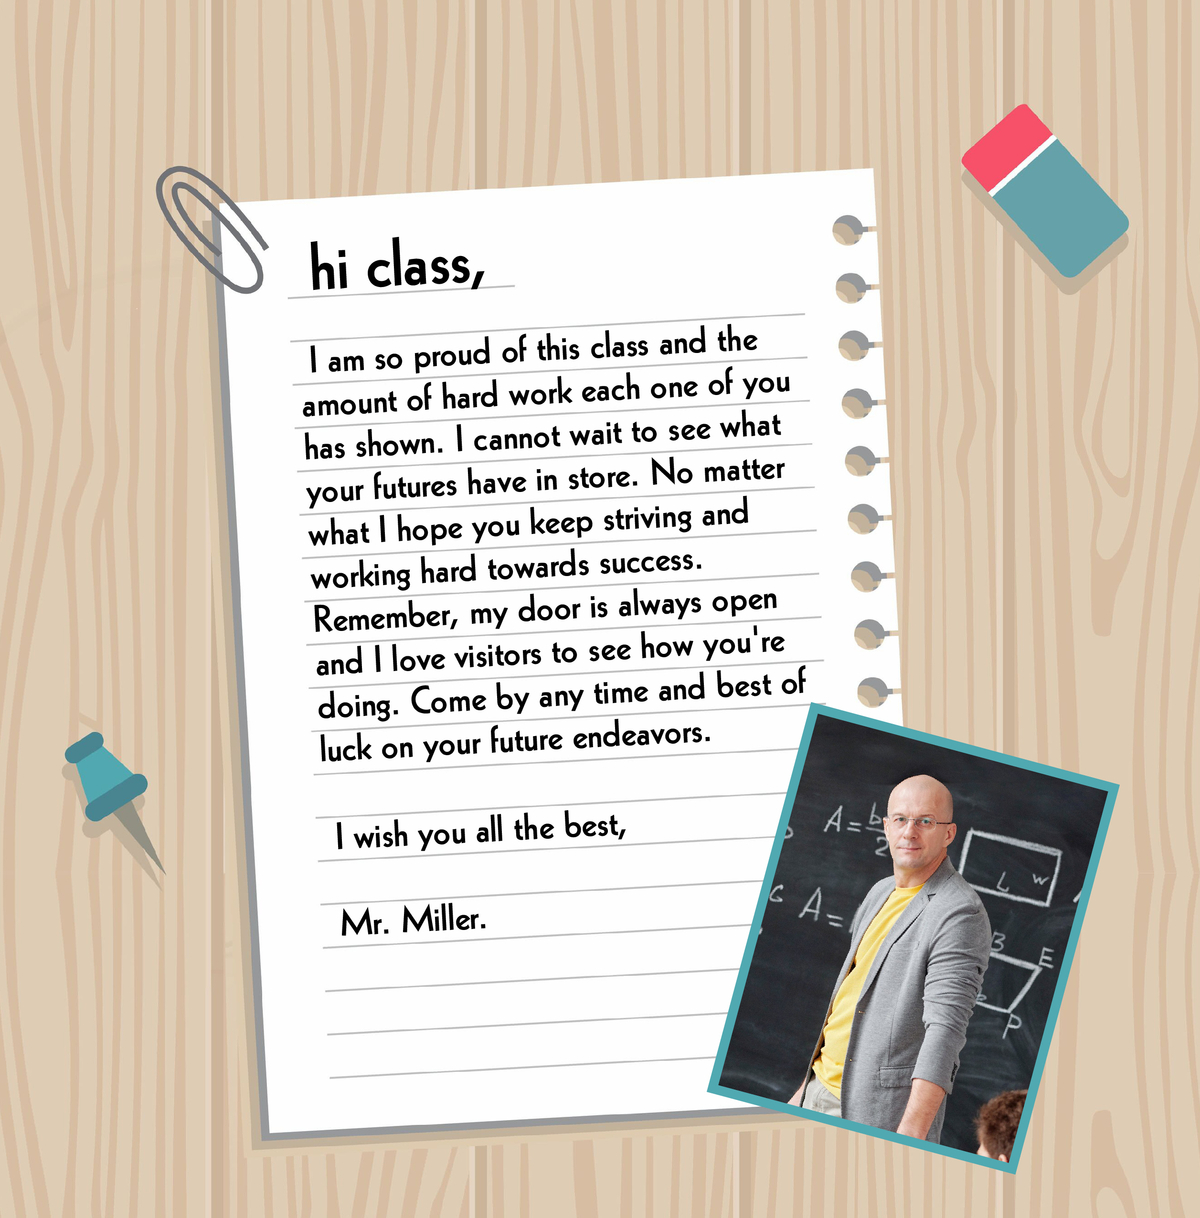 hi class,
I am so proud of this class and the
amount of hard work each one of you
has shown. I cannot wait to see what
your futures have in store. No matter
what I hope you keep striving and
working hard towards success.
Remember, my door is always open
and I love visitors to see how you're
doing. Come by any time and best of
luck on your future endeavors.
I wish you all the best,
Mr. Miller.
A=b
2
L w
A=
B
E
P